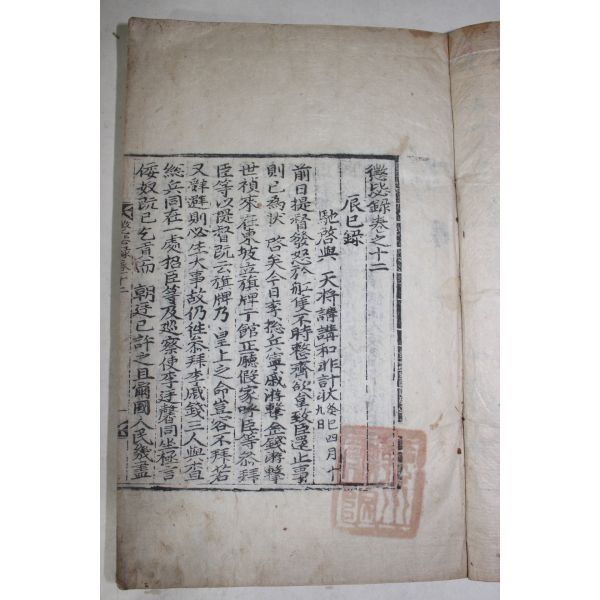 懲毖錄卷之十二
辰巳錄
馳啓與 天將講講和非計狀癸巳四月十九日
前日提督發怒於舡隻不時整齊欲皇致臣還止事
則已爲狀 啓矣今日李揔兵寧戚游擊金錢游擊
世禎來在東坡立旗牌于館正廳假家呼臣等參拜
臣等以提督旣云旗牌乃 皇上之命豈容不拜若
又辭避則必生大事故仍往參拜李戚錢三人與査
總兵同在一處招臣等及巡察使李廷馨同坐極言
倭奴旣已乞貢而 朝廷已許之且爾國人民幾盡
懲毖錄卷十二